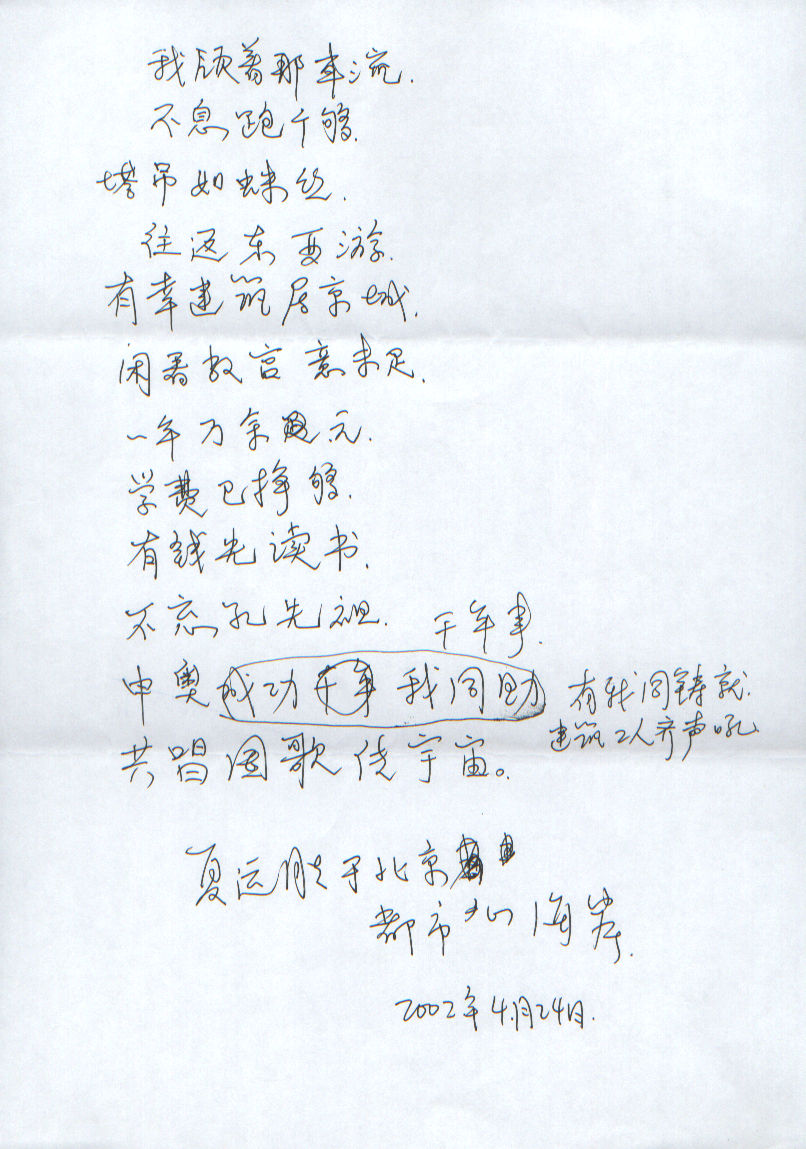 我颀着那车流.
不息跑个够.
塔吊如蛛丝.
往返东西游.
有幸建筑居京城.
闲暑故宫意未足.
一年万余元.
学费已挣够.
有钱先读书.
不忘孔先祖.
千年事.
申奥成功 我同助
有我同铸就.
建筑工人齐声吼
共唱国歌绕宇宙。
夏运胜于北京
都市 海岸.
2002年4月24日.